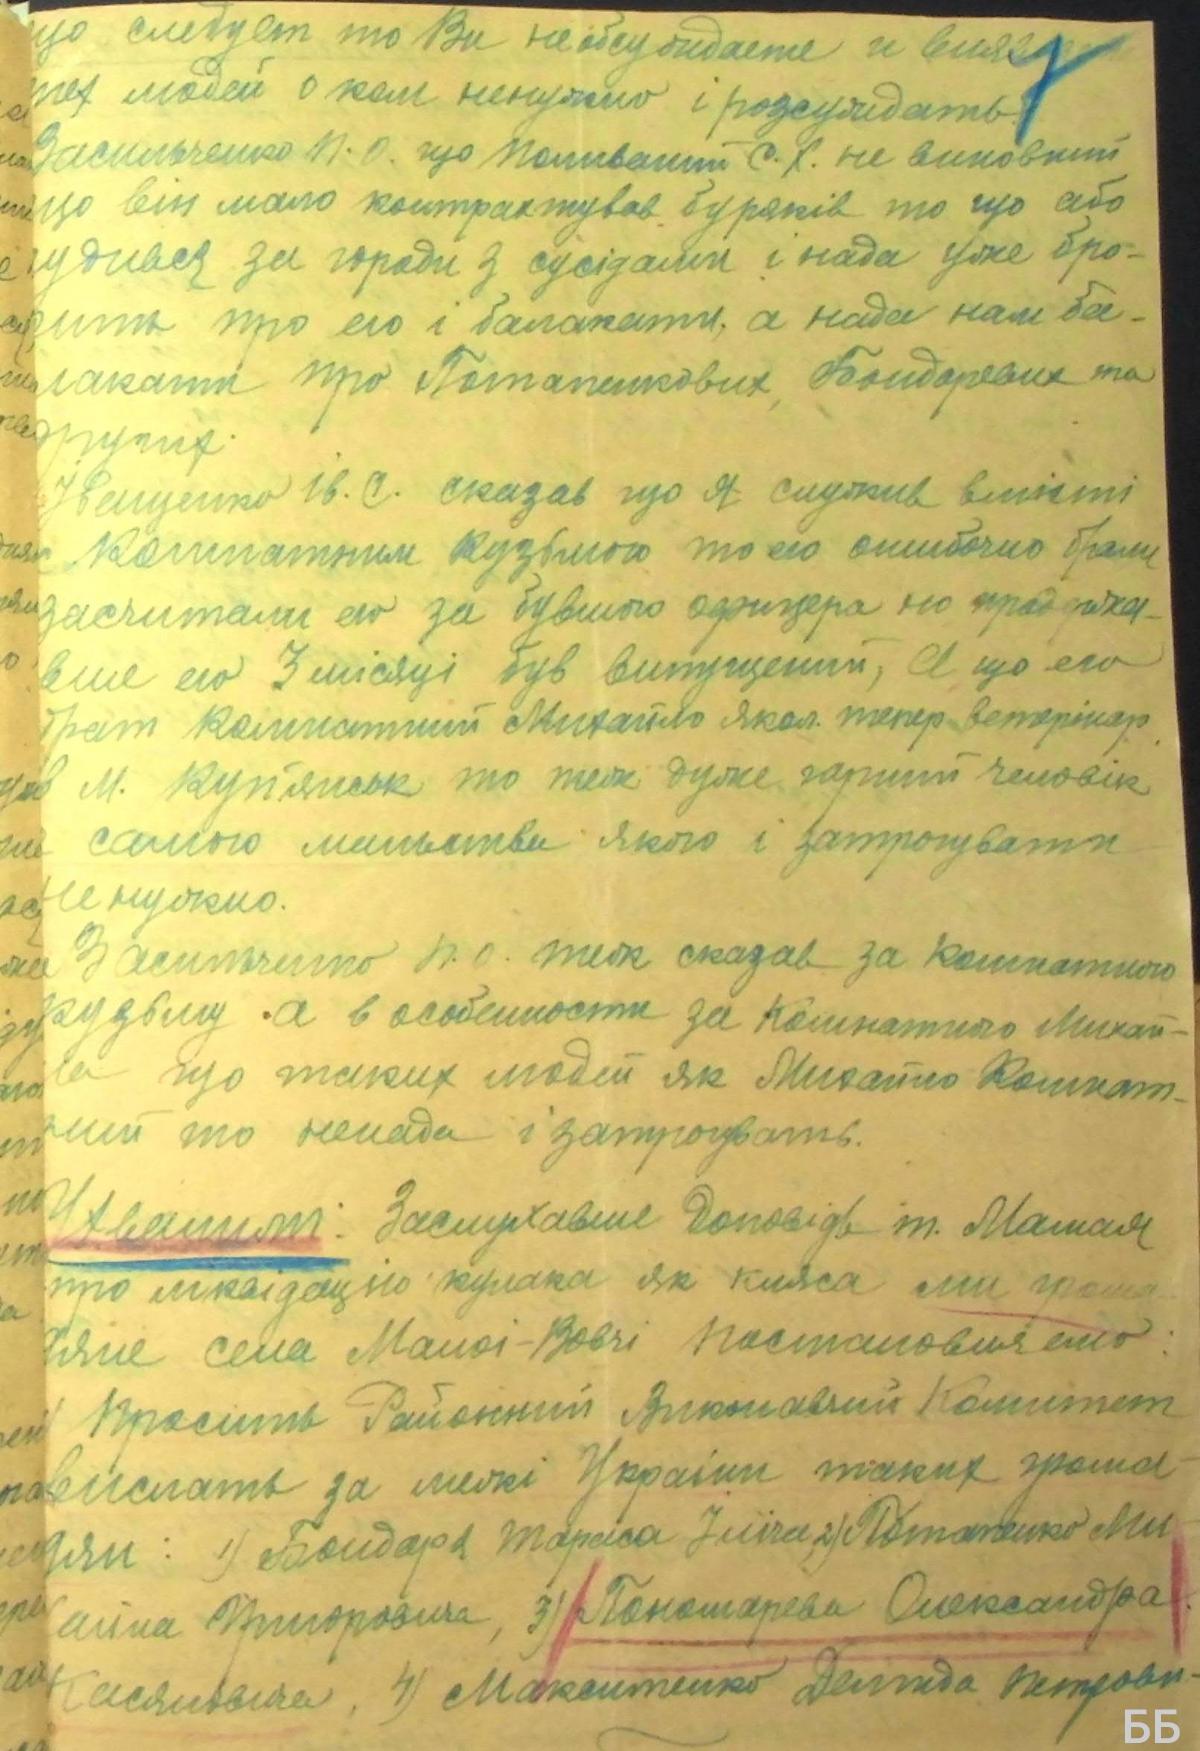 що следует то Ви необсуждаете и
тех людей о ком ненужно і розсуждать
Засильченко П. О. що Поливаний С. Х. не виновний
що він мало контрактував буряків то що або
судився за городи з сусідами і нада уже бро-
сить про его і балакати, а нада нам ба-
лакати про Потапенкових, Бондаревих та
других.
Іващенко Ів. С. сказав що я служив вмісті
Комнатним Кузьмою то ею ошибочно брали
засчитали ею за бувшого офицера но продержа-
вше ею 3 місяці був випущений, А що его
брат Комнатний Михайло якал. тепер ветерінар
в М. Куп'янськ то теж дуже гарний человік
самого мальства якого і затрогувати
ненужно.
Засильченко П. О. теж сказав за Комнатного
Кузьму а в особенности за Комнатного Михай-
ла що таких людей як Михайло Комнат-
ний то ненада і затрогувать.
Ухвалили: Заслухавше доповідь т. Мамая
про ліквідацію кулака як кляса ми грома-
дяне села Малої-Вовчі постановляемо:
Просить Районний Виконавчий Комитет
вислать за межі України таких грома-
дян: 1) Бондаря Тараса Ілліча, 2) Потапенко Ми-
хайла Григоровича, 3) Пономарева Олександра
Касяновича, 4) Максименко Демида Петрови-
ББ